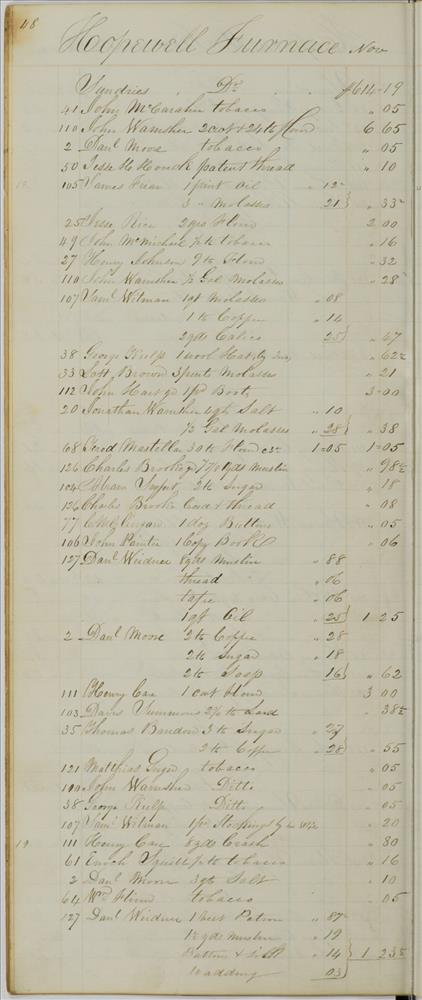 48
Hopewell Furnace Nov
Sundries Dr $614-19
41 John McCarahen tobacco " 05
110 John Wamsher 2 cwt & 24 lb flour 6 65
2 Danl Moore tobacco " 05
50 Jesse H Houck patent thread " 10
105 James 1 pint Oil " 12
3 " Molasses 21 " 33
25 Jesse Rice 2 qrs Flour 2 00
49 John McMichael ½ lb tobacco " 16
27 Henry Johnson 9 lb Flour " 32
110 John Wamsher ½ Gal Molasses " 28
107 Saml Witman 1 qt Molasses " 08
1 lb Coffee " 14
2 yds Calico 25 " 47
38 George Kulp 1 wool Hat by " 62½
33 Lott Brown 3 pints Molasses " 21
112 John Hart 1 pr Boots 3=00
20 Jonathan Wamsher 4 qts Salt " 10
½ Gal Molasses " 28 " 38
68 Mastella 30 lb Flour 3½ 1=05 1=05
126 Charles Brooke 7 yds Muslin " 98½
104 Hiram 2 lb Sugar " 18
126 Charles Brooke Cord & thread " 08
77 1 doz Buttons " 05
106 John Painter 1 Copy Book " 06
127 Danl Weidner 8 yds Muslin " 88
thread " 06
tape " 06
1 qt Oil " 25 1 25
2 Danl Moore 2 lb Coffee " 28
2 lb Sugar " 18
2 lb Soap 16 " 62
111 Henry Care 1 cwt flour 3 00
103 Davis Simmons lb Lard " 38½
35 Thomas Bauder 3 lb Sugar " 27
2 lb Coffee " 28 " 55
121 Matthias tobacco " 05
110 John Wamsher Ditto " 05
38 George Kulp Ditto " 05
107 Saml Witman 1 pr Stockings by his Wife " 20
19 111 Henry Care 8 yds Crash " 80
61 Enoch lb tobacco " 16
2 Danl Moore 3 qts Salt " 10
64 Wm tobacco " 05
127 Danl Weidner 1 Vest Pattern " 87
yds muslin " 19
Buttons & " 14 1 23½
wadding 03